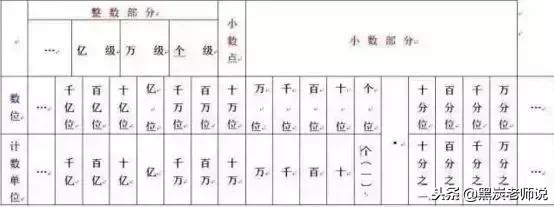 整数部分 小数点 小数部分
… 亿级 万级 个级
数位 … 千亿位 百亿位 十亿位 亿位 千万位 百万位 十万位 万位 千位 百位 十位 个位 · 十分位 百分位 千分位 万分位 …
计数单位 … 千亿 百亿 十亿 亿 千万 百万 十万 万 千 百 十 个(一) 十分之一 百分之一 千分之一 万分之一
头条@黑炭老师说